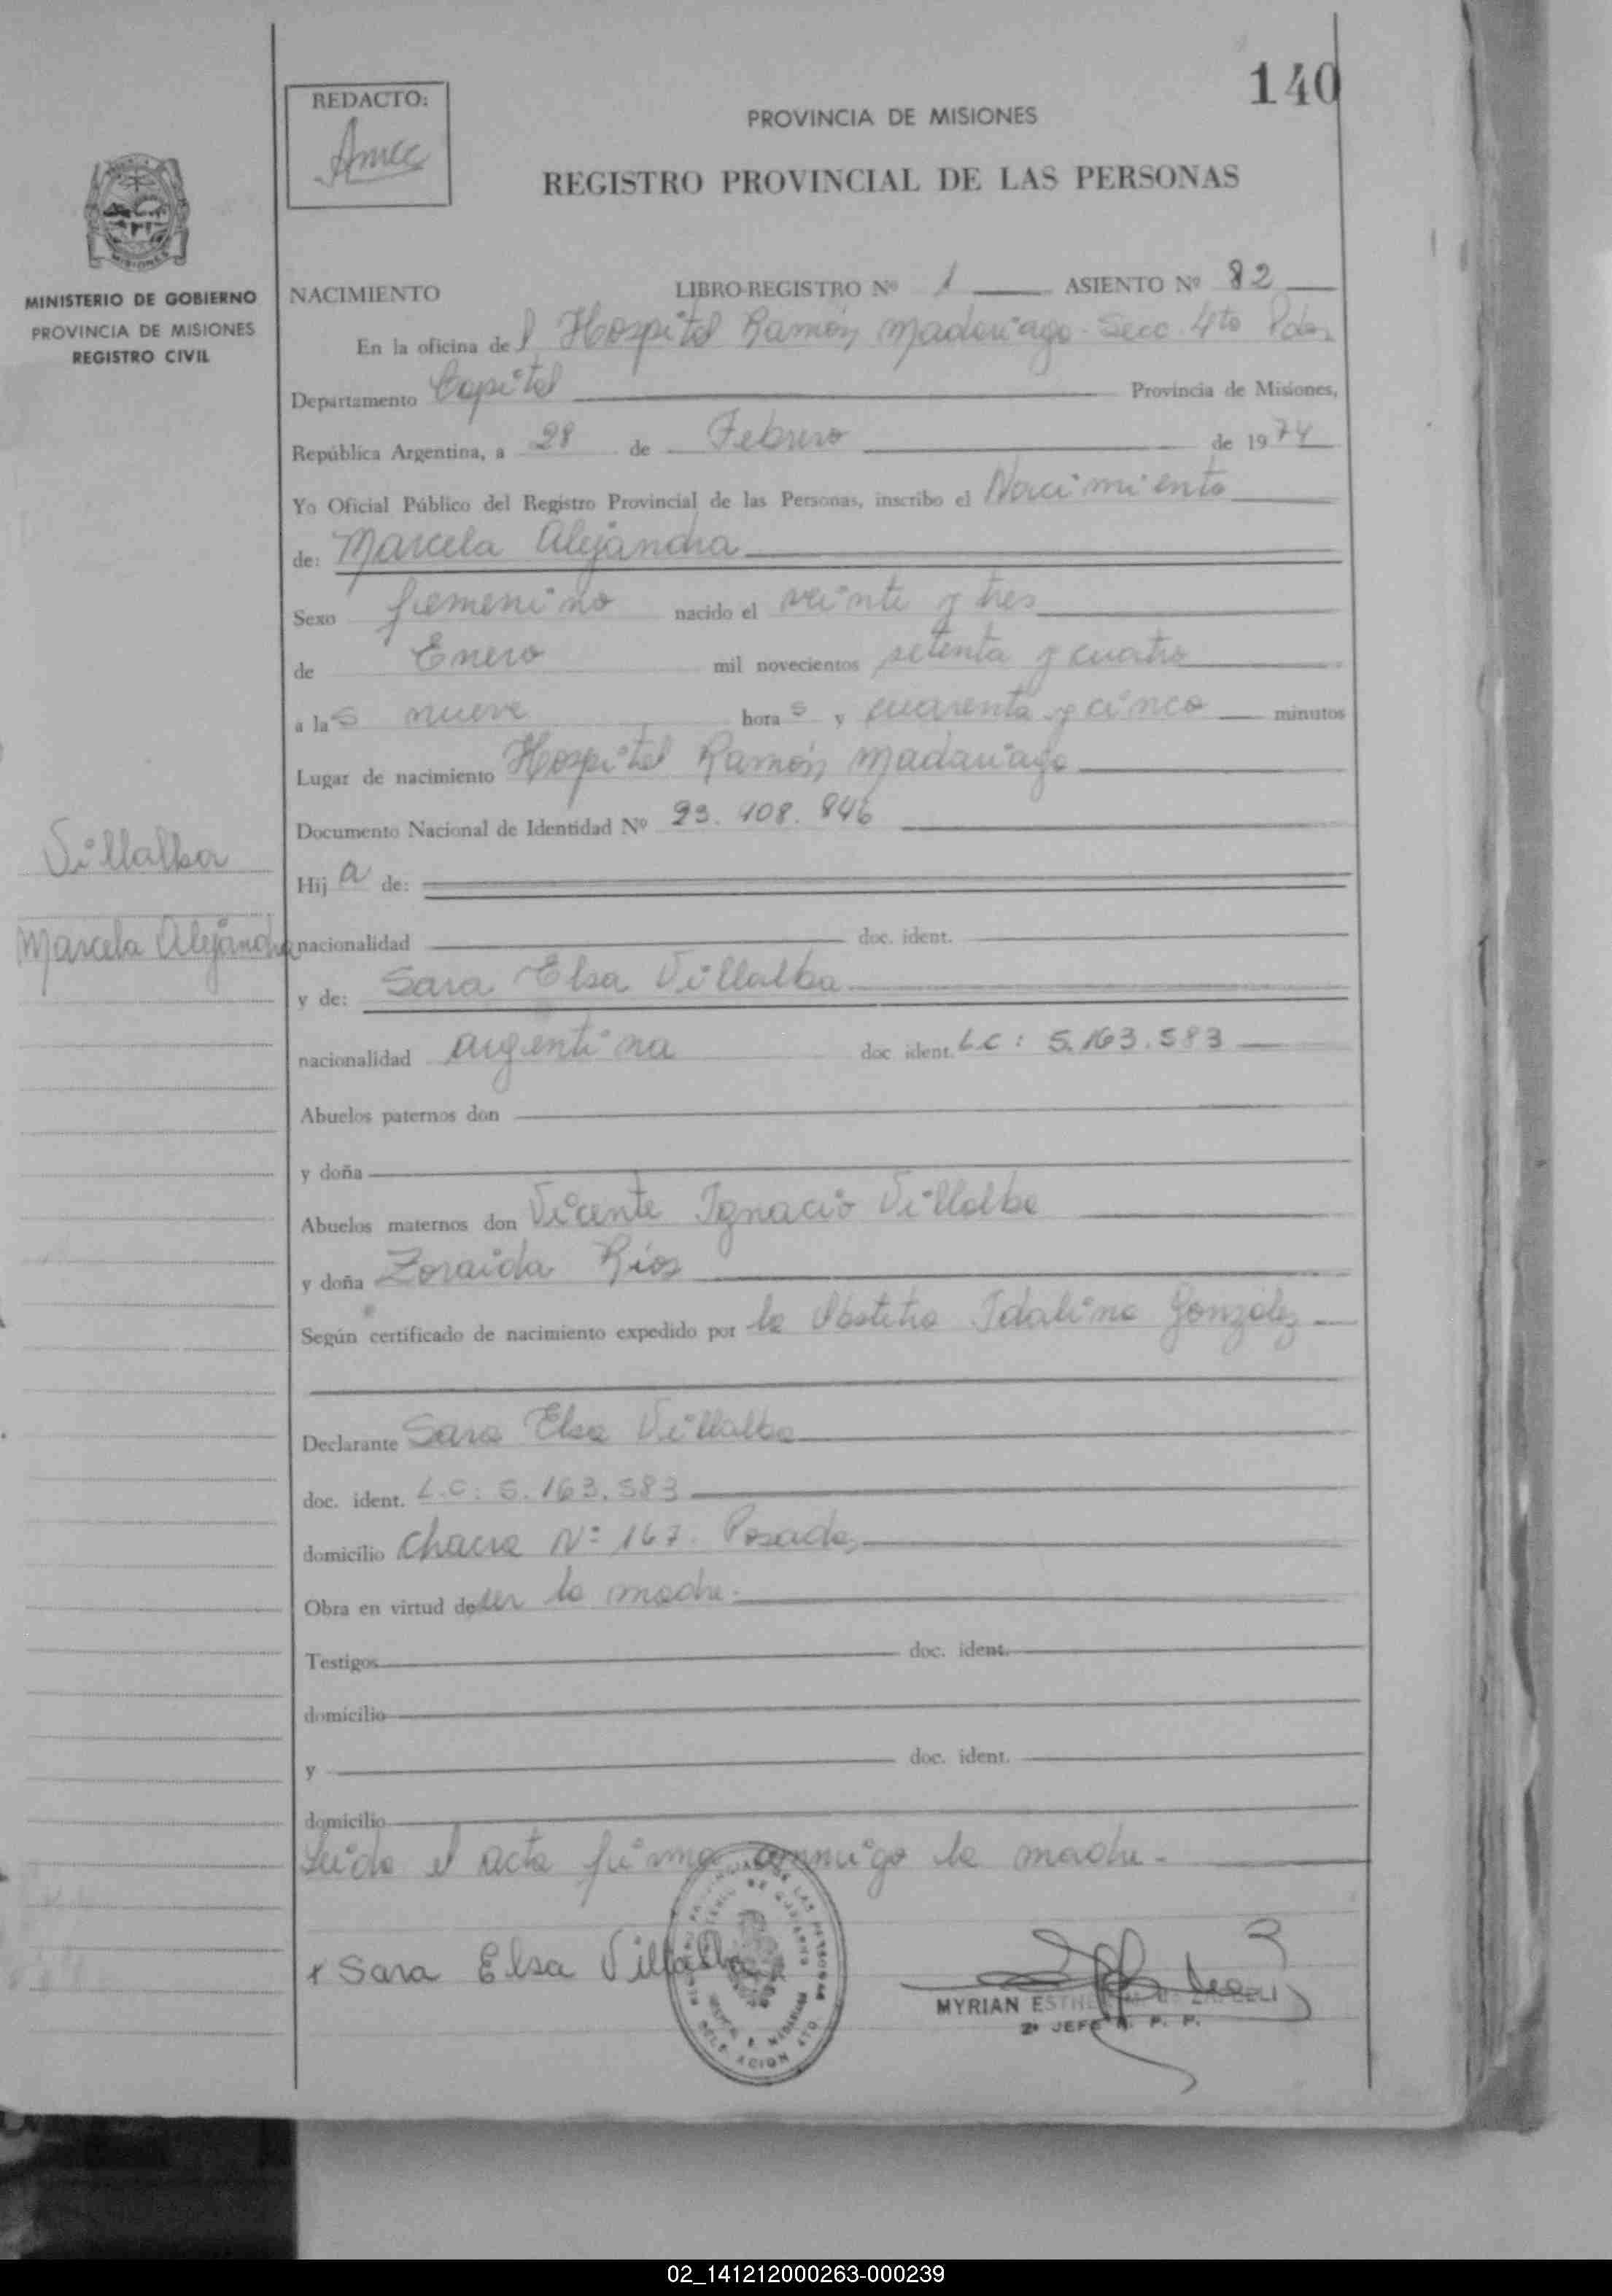 140
REDACTO:
PROVINCIA DE MISIONES
REGISTRO PROVINCIAL DE LAS PERSONAS
MISIONES
MINISTERIO DE GOBIERNO
PROVINCIA DE MISIONES
REGISTRO CIVIL
NACIMIENTO LIBRO-REGISTRO Nº 1 ASIENTO Nº 82
En la oficina del Hospital Ramón Madariaga - Secc. 4ta Pdas
Departamento Capital Provincia de Misiones,
República Argentina, a 28 de Febrero de 1974
Yo Oficial Público del Registro Provincial de las Personas, inscribo el Nacimiento
de: Marcela Alejandra
Sexo femenino nacido el veinte y tres
de Enero mil novecientos setenta y cuatro
a las nueve horas y cuarenta y cinco minutos
Lugar de nacimiento Hospital Ramón Madariaga
Documento Nacional de Identidad Nº 23.408.846
Villalba
Hija de:
Marcela Alejandra
nacionalidad doc. ident.
y de: Sara Elsa Villalba
nacionalidad argentina doc ident. L.C: 5.163.583
Abuelos paternos don
y doña
Abuelos maternos don Vicente Ignacio Villalba
y doña Zoraida Ríos
Según certificado de nacimiento expedido por la Obstetra Idalina González
Declarante Sara Elsa Villalba
doc. ident. L.C: 5.163.583
domicilio Chacra Nº 167. Posadas
Obra en virtud de ser la madre.
Testigos doc. ident.
domicilio
y doc. ident.
domicilio
Leida el acta firma conmigo la madre.
x Sara Elsa Villalba
MYRIAN ESTHER
2º JEFE R. P. P.
02_141212000263-000239